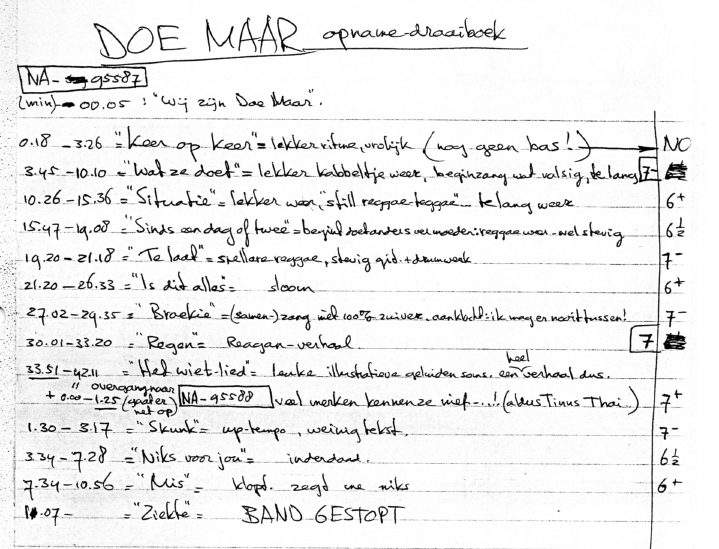 DOE MAAR opname-draaiboek
NA- 95587
(min) 00.05 : "Wij zijn Doe Maar".
0.18 - 3.26 = "Keer op Keer" = lekker ritme, vrolijk (nog geen bas!) NO
3.45 - 10.10 = "Wat ze doet" = lekker kabbeltje weer, beginzang wat valsig, te lang 7-
10.26 - 15.36 = "Situatie" = lekker weer, "still reggae-teggae"... te lang weer 6+
15.47 - 19.08 = "Sinds een dag of twee" = begint zoet anders vermoeden: reggae weer - wel stevig 6½
19.20 - 21.18 = "Te laat" = snellere reggae, stevig git. + drumwerk 7-
21.20 - 26.33 = "Is dit alles" = sloom 6+
27.02 - 29.35 = "Broekie" = (samen-)zang niet 100% zuiver. ik mag er nooit tussen! 7-
30.01 - 33.20 = "Regen" = Reagan-verhaal 7
33.51 - 42.11 = "Het wiet-lied" = leuke illustratieve geluiden soms. een heel verhaal dus.
" overgang naar
+ 0.00 - 1.25 (gaat er net op) NA-95588 veel merken kennen ze niet -..! (aldus Tinus Thai..) 7+
1.30 - 3.17 = "Skunk" = up-tempo, weinig tekst. 7-
3.34 - 7.28 = "Niks voor jou" = inderdaad. 6½
7.34 - 10.56 = "Mis" = klopt. zegt me niks 6+
11.07 - = "Ziekte" = BAND GESTOPT